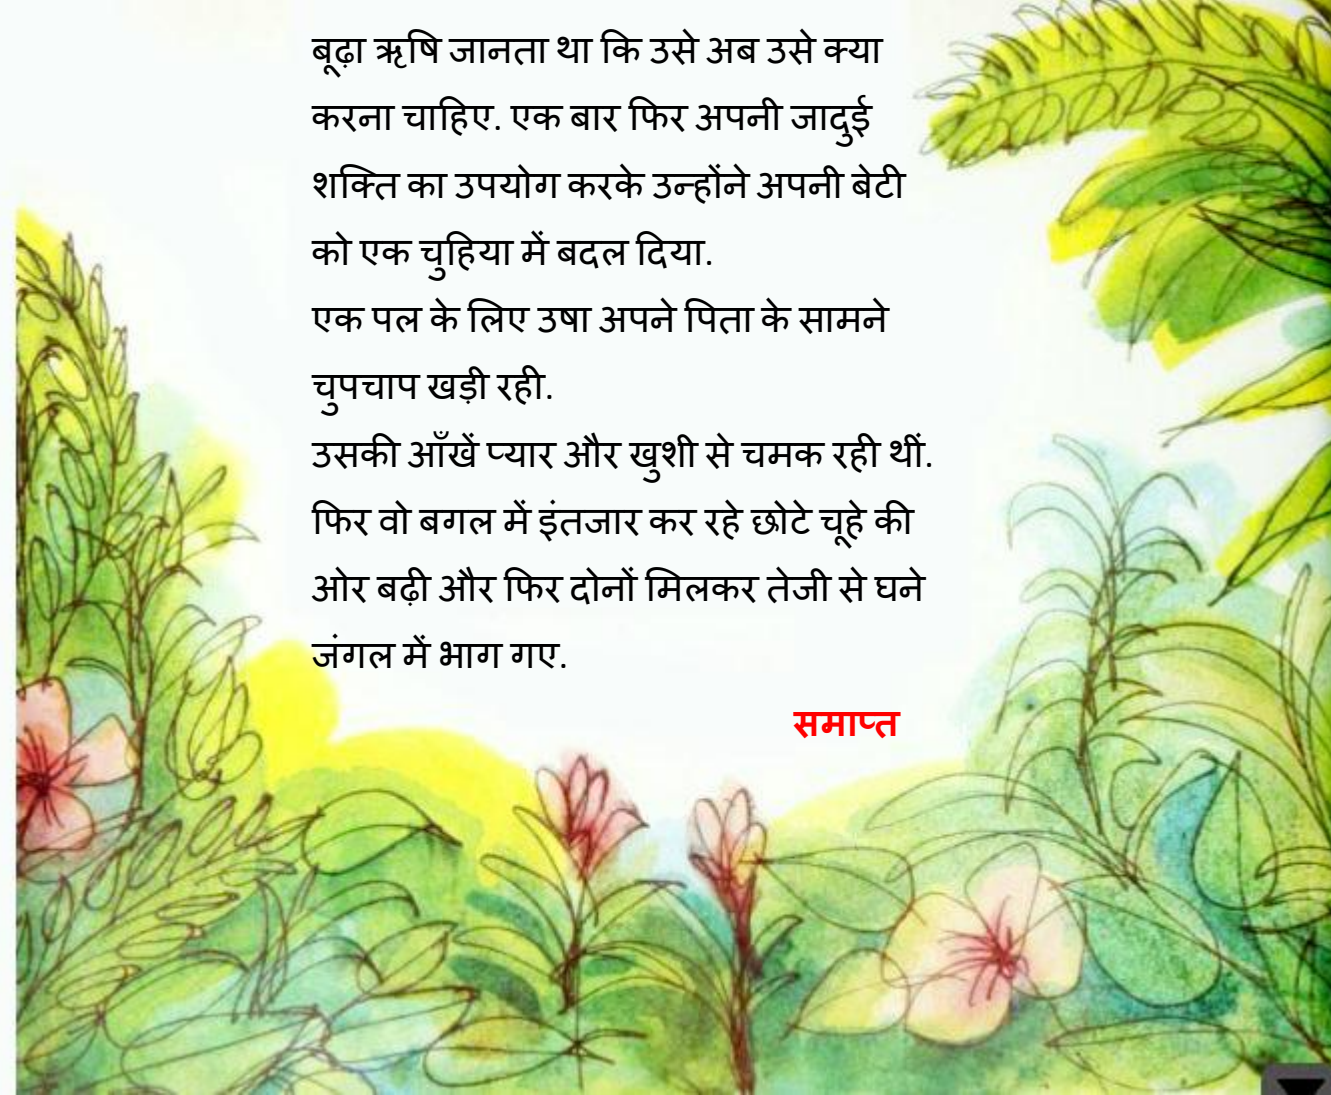 बूढ़ा ऋषि जानता था कि उसे अब उसे क्या
करना चाहिए. एक बार फिर अपनी जादुई
शक्ति का उपयोग करके उन्होंने अपनी बेटी
को एक चुहिया में बदल दिया.
एक पल के लिए उषा अपने पिता के सामने
चुपचाप खड़ी रही.
उसकी आँखें प्यार और खुशी से चमक रही थीं.
फिर वो बगल में इंतजार कर रहे छोटे चूहे की
ओर बढ़ी और फिर दोनों मिलकर तेजी से घने
जंगल में भाग गए.
समाप्त